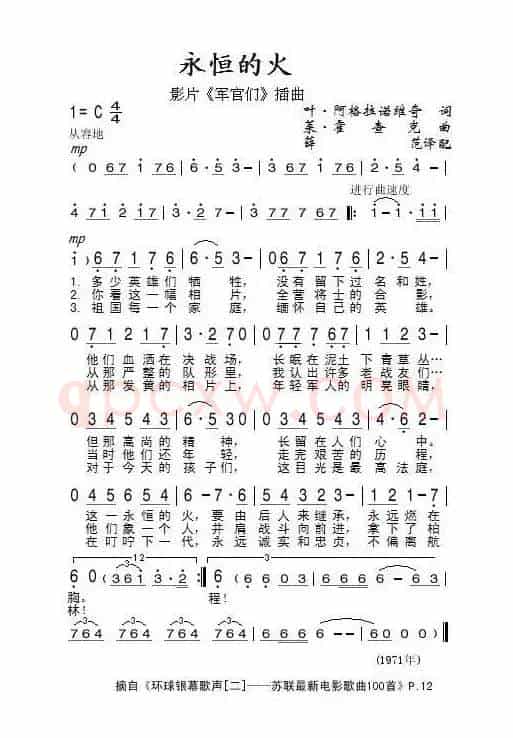 永恒的火
影片《军官们》插曲
1=C 4/4
叶·阿格拉诺维奇 词
莱·霍查克 曲
薛范译配
从容地
mp
( 0 67 1 76 | 6·5 3- | 0 67 1 76 | 2·5 4- |
进行曲速度
4 71 21 7 | 3·2 7 - | 3 77 67 6 - ‖: i-i· ii |
mp
i ) 6 7 1 7 6 | 6·5 3- | 0 6 7 1 7 6 | 2·5 4- |
1. 多少英雄们 牺牲, 没有留下过名和姓,
2. 你看这一幅相片, 全营将士的合影,
3. 祖国每一个家庭, 缅怀自己的英雄。
0 7 1 2 1 7 | 3·2 7 0 | 0 7 7 7 6 7 | 6 - - - |
他们血洒在决战场, 长眠在泥土下青草丛…
从那严整的队形里, 我认出许多老战友们…
从那发黄的相片上, 年轻军人的明亮眼睛,
gDCXW.COM
0 3 4 5 4 3 | 2·1 6 0 | 0 2 3 4 3 2 | 3 - - - |
但那高尚的精神, 长留在人们心中。
当时他们还年轻, 走完艰苦的历程,
对于今天的孩子们, 这目光是最高法庭,
0 4 5 6 5 4 | 3·2 7 0 3 | 1 7 6 5 4 | 3 0 4 3 1 |
这一永恒的火,要由后人来继承,永远燃在
他们象一个人,并肩战斗向前进,拿下了柏
在叮咛下一代,永远诚实和忠贞,不偏离航
12
3
6 0 ( 3 6 1 3·2 :‖ 6 0 ( 6 3 4 3 | 6 6 0 3 | 6 6 6 6 0 |
胸。 程!
林!
7 6 4 7 6 4 | 7 6 4 7 6 4 | 6 6 6 6 6 6 | 6 0 0 0 ) ‖
(1971年)
摘自《环球银幕歌声[二]——苏联最新电影歌曲100首》P.12